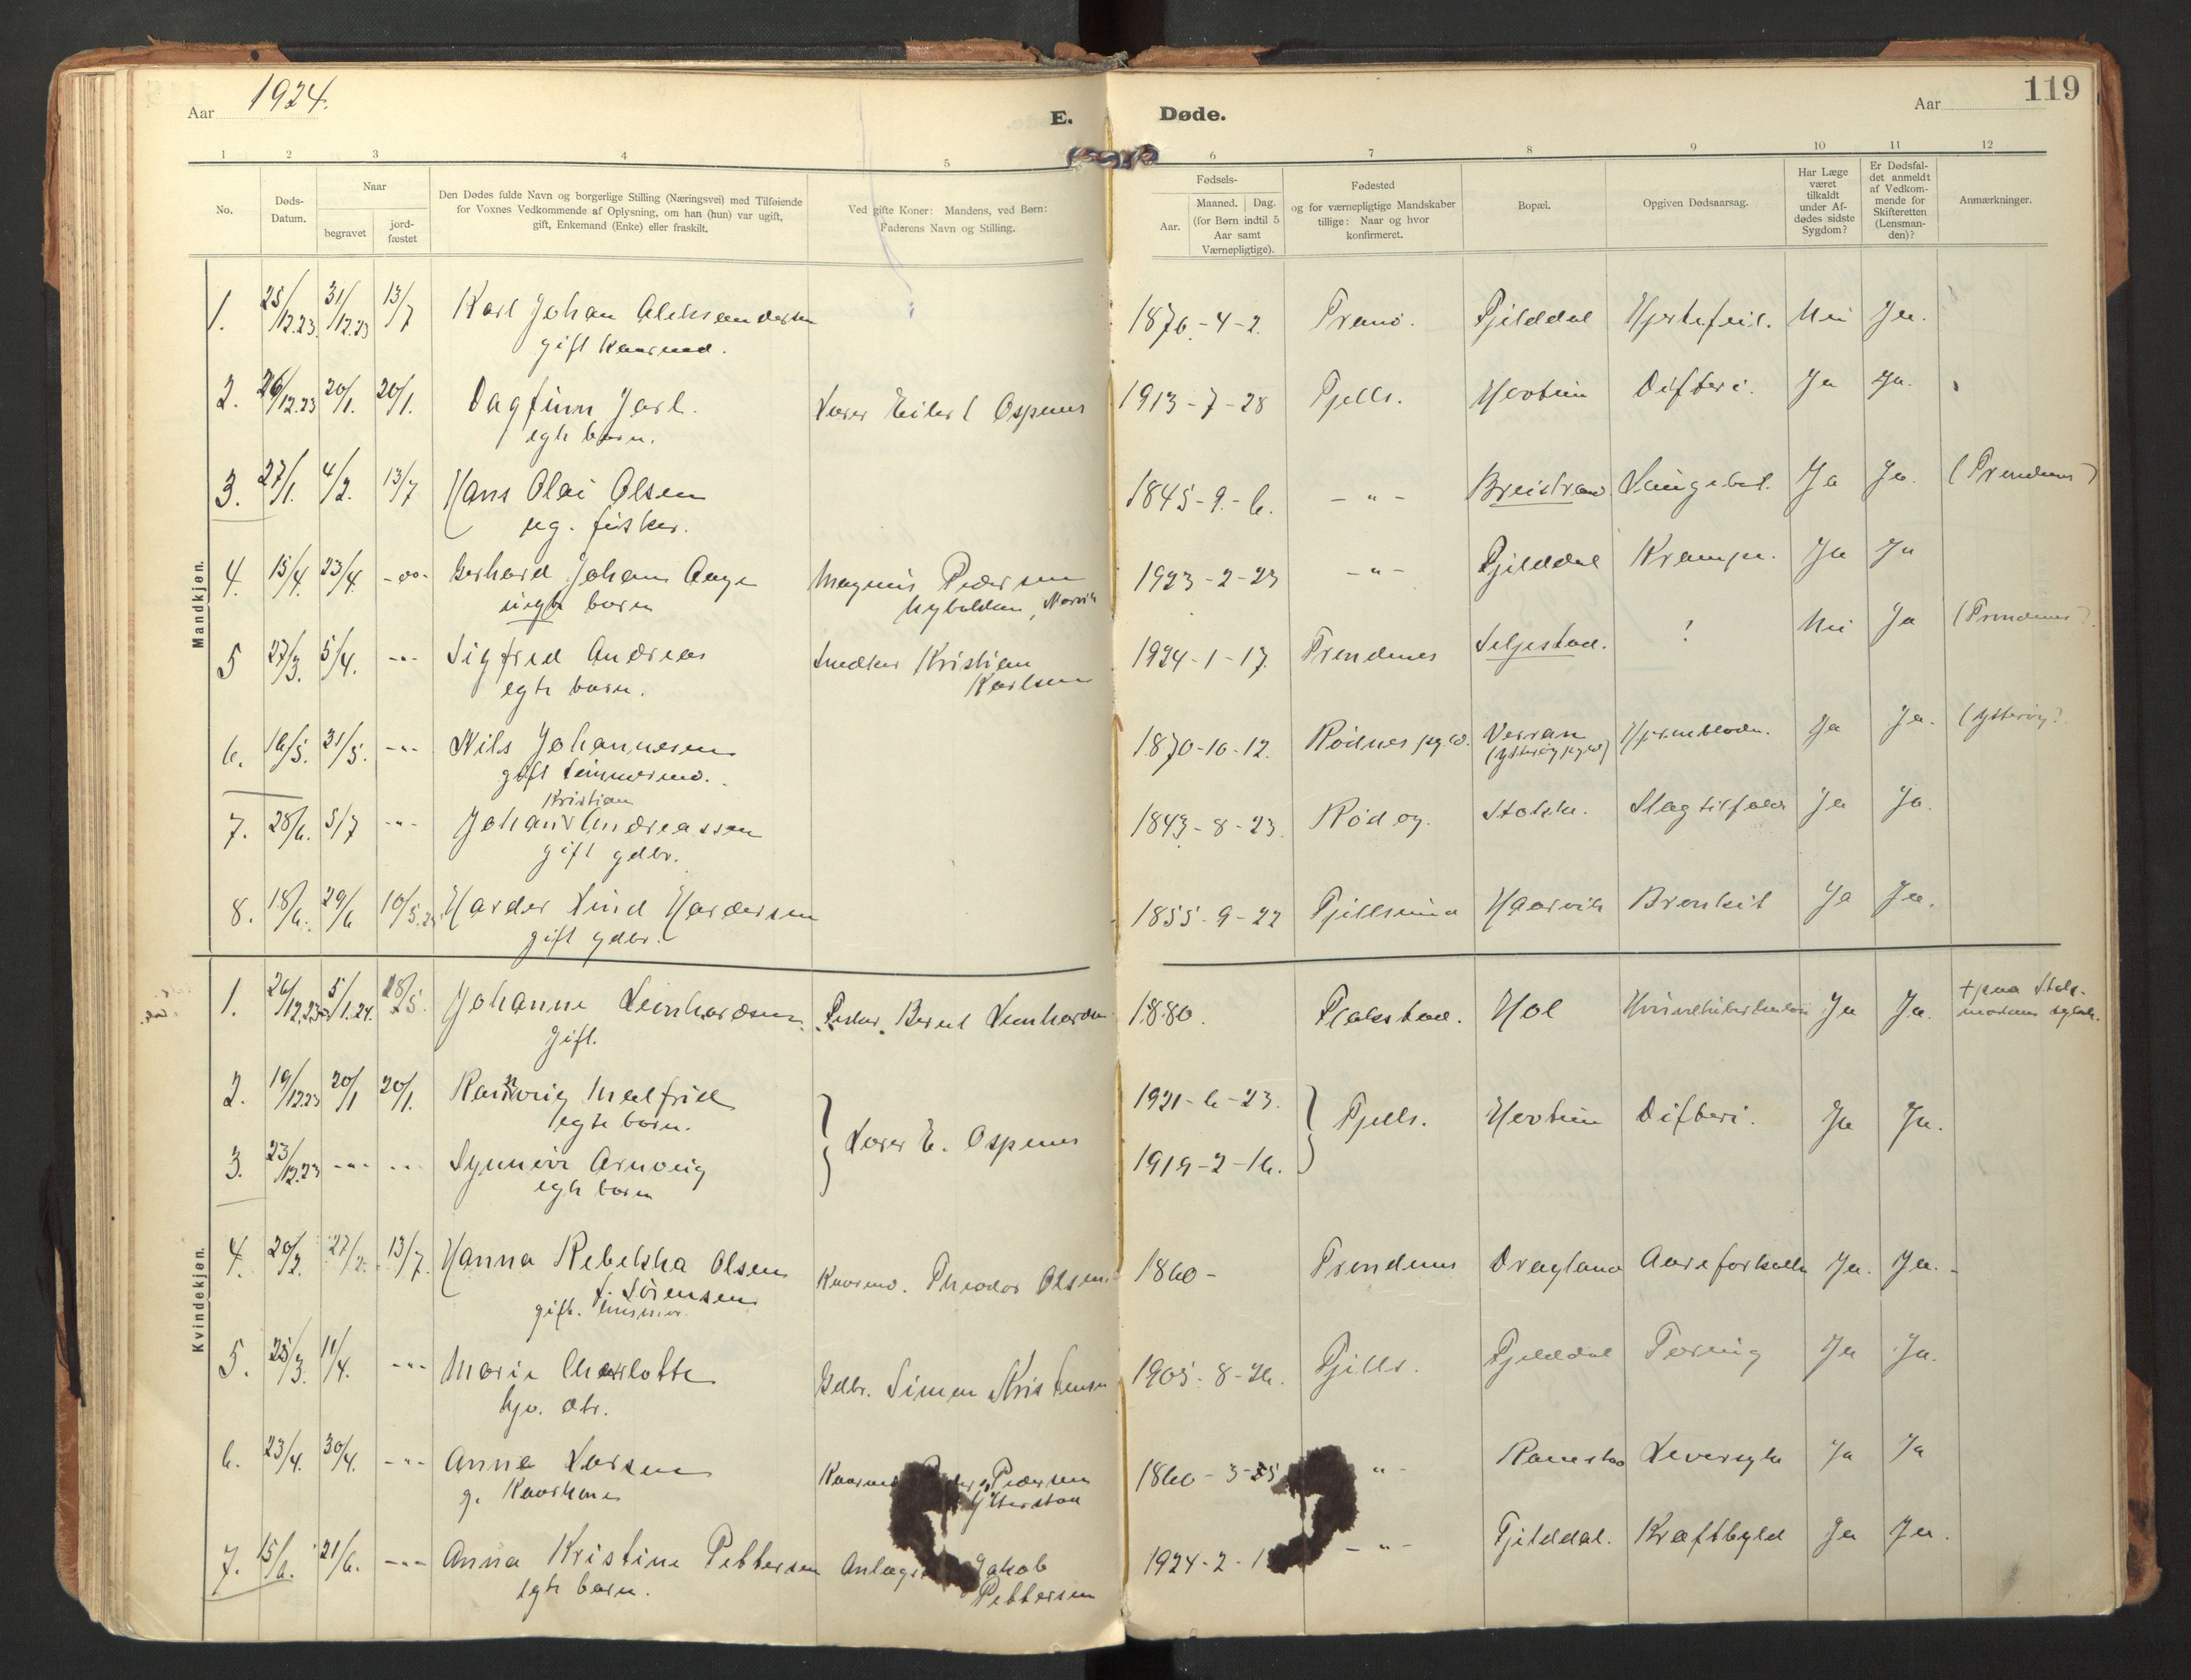 Aar 1924.
E.
Døde.
Aar
119
1 2 3 4 5 6 7 8 9 10 11 12
No.
Døds-
Datum.
Naar
begravet
jord-
fæstet
Den Dødes fulde Navn og borgerlige Stilling (Næringsvei) med Tilføiende
for Voxnes Vedkommende af Oplysning, om han (hun) var ugift,
gift, Enkemand (Enke) eller fraskilt.
Ved gifte Koner: Mandens, ved Børn:
Faderens Navn og Stilling.
Fødsels-
Aar.
Maaned. Dag.
(for Børn indtil 5
Aar samt
Værnepligtige).
Fødested
og for værnepligtige Mandskaber
tillige: Naar og hvor
konfirmeret.
Bopæl.
Opgiven Dødsaarsag.
Har Læge
været
tilkaldt
under Af-
dødes sidste
Sygdom?
Er Dødsfal-
det anmeldt
af Vedkom-
mende for
Skifteretten
(Lensman-
den)?
Anmærkninger.
Mandkjøn.
1. 25/12.23. 31/12.23 13/7 Karl Johan Aleksandersen 1876-4-2. Tranö. Fjelddal Hjertefeil. Nei Ja.
gift Kaarmd.
2. 26/12.23 20/1. 20/1. Dagfinn Jarl. Lærer Eilert Ospenes 1913-7-28 Fjells. Hovtun Difteri. Ja Ja.
egte barn.
3. 27/1. 4/2. 13/7 Hans Olai Olsen 1845-9-6. -"- Breistrand Lungebet. Ja Ja. (Trondenes)
ug. fisker.
4. 15/4. 23/4. -"- Gerhard Johan Aage Magnus Pedersen 1923-2-23 -"- Fjelddal Krampe. Ja Ja
uegte barn
Narvik
5 27/3. 5/4. -"- Sigfred Andreas Snedker Kristian 1924-1-17. Trondenes Seljestad. ! Nei Ja (Trondenes).
egte barn. Karlsen
6. 16/5. 31/5. -"- Nils Johannesen 1870-10-12. Rödnes pg.d. Verran Hjerneblødn. Ja Ja. (Ytterøy).
gift tømmermd. (Ytterøy pgd)
Kristian
7. 28/6. 5/7 -"- Johan Andreassen 1843-8-23. Rödøy. Stokke. Slagtilfælde Ja Ja.
gift gdbr.
8. 18/6. 29/6 10/5.25 Harder Lind Hardersen 1855-9-22 Fjeldsund Haarvik Bronkit Ja Ja.
gift gdbr.
Kvindekjøn.
1. 26/12.23 5/1.24. 18/5. Johanne Leonhardsen Fisker Bernt Leonhardsen 1880. Flakstad. Hol Ja Ja. + paa
Gift.
2. 19/12.23 20/1 20/1. Rannveig Malfrid 1921-6-23.
egte barn.
Lærer E. Ospenes Fjells. Hovtun Difteri. Ja Ja.
3. 23/12.23 -"- -"- Synnöve Arnveig 1919-2-16.
egte barn
4. 20/2. 27/2. 13/7. Hanna Rebekka Olsen Kaarmd. Theodor Olsen 1860- Trondenes Dragland Aareforkalk Ja. Ja.
f. Sörensen
gift. husmor.
5. 25/3. 11/4. -"- Marie Charlotte Gdbr. Simon Kristensen 1905-8-26. Fjells. Fjelddal Tæring Ja Ja.
hjv. dtr.
6. 23/4. 30/4. -"- Anne Larsen Kaarmd Pedersen 1860-3-25 -"- Ramstad Leversyke Ja Ja
g. Kaarkone Ytterstad
7. 15/6. 21/6. -"- Anna Kristine Pettersen Anlægs Jakob 1924-2-1 -"- Fjelddal. Kraftbyld Ja Ja.
egte barn. Pettersen